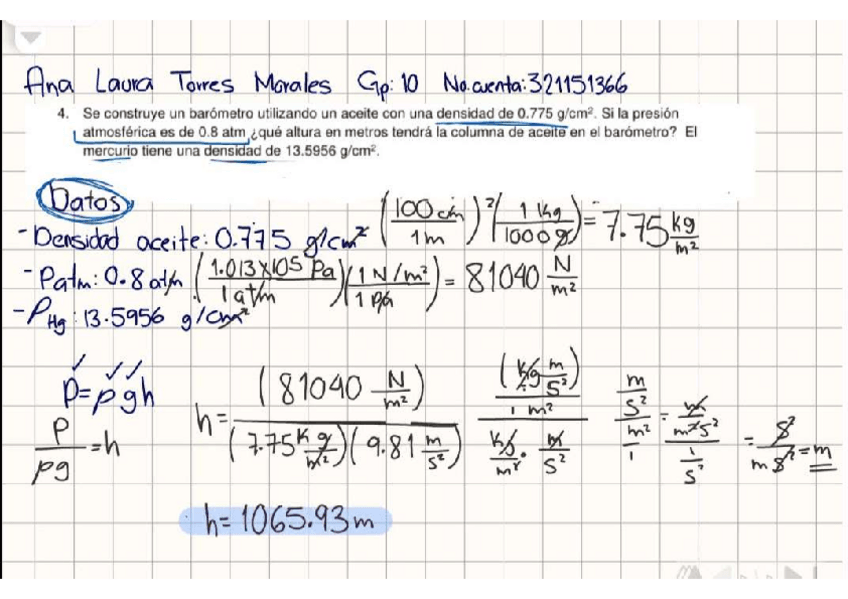 Ana Laura Torres Morales Gp: 10 No. cuenta: 321151366
4. Se construye un barómetro utilizando un aceite con una densidad de 0.775 g/cm². Si la presión
atmosférica es de 0.8 atm ¿qué altura en metros tendrá la columna de aceite en el barómetro? El
mercurio tiene una densidad de 13.5956 g/cm².
Datos
- Densidad aceite: 0.775 g/cm² (100 cm / 1 m)² (1 kg / 1000 g) = 7.75 kg/m²
- Patm: 0.8 atm (1.013x105 Pa / 1 atm) (1 N/m² / 1 Pa) = 81040 N/m²
- ρHg: 13.5956 g/cm²
P = ρgh
P/ρg = h
h = (81040 N/m²) / (7.75 kg/m²)(9.81 m/s²) (kg m/s²) / 1 m² / kg/m² · m/s² m/s² / m² / 1 = m / m² s² / 1/s² = s² / m s² = m
h = 1065.93 m